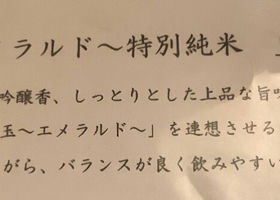 ラルド～特別純米
吟醸香、しっとりとした上品な旨
玉～エメラルド～」を連想させる
がら、バランスが良く飲みやすい